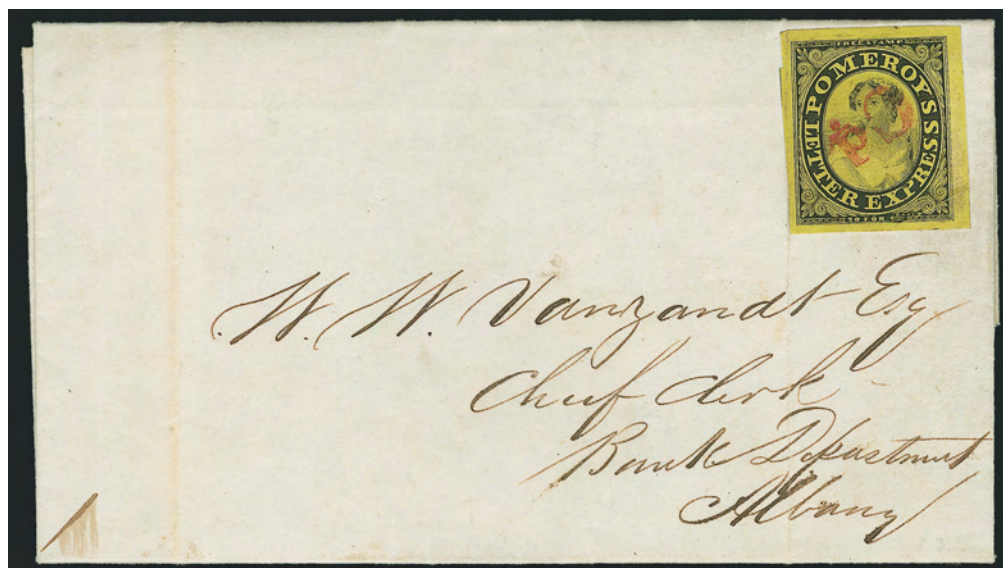 FREE STAMP
POMEROY'S
LETTER EXPRESS
20 FOR
W. W. Vanzandt Esq
Chief Clerk
Bank Department
Albany